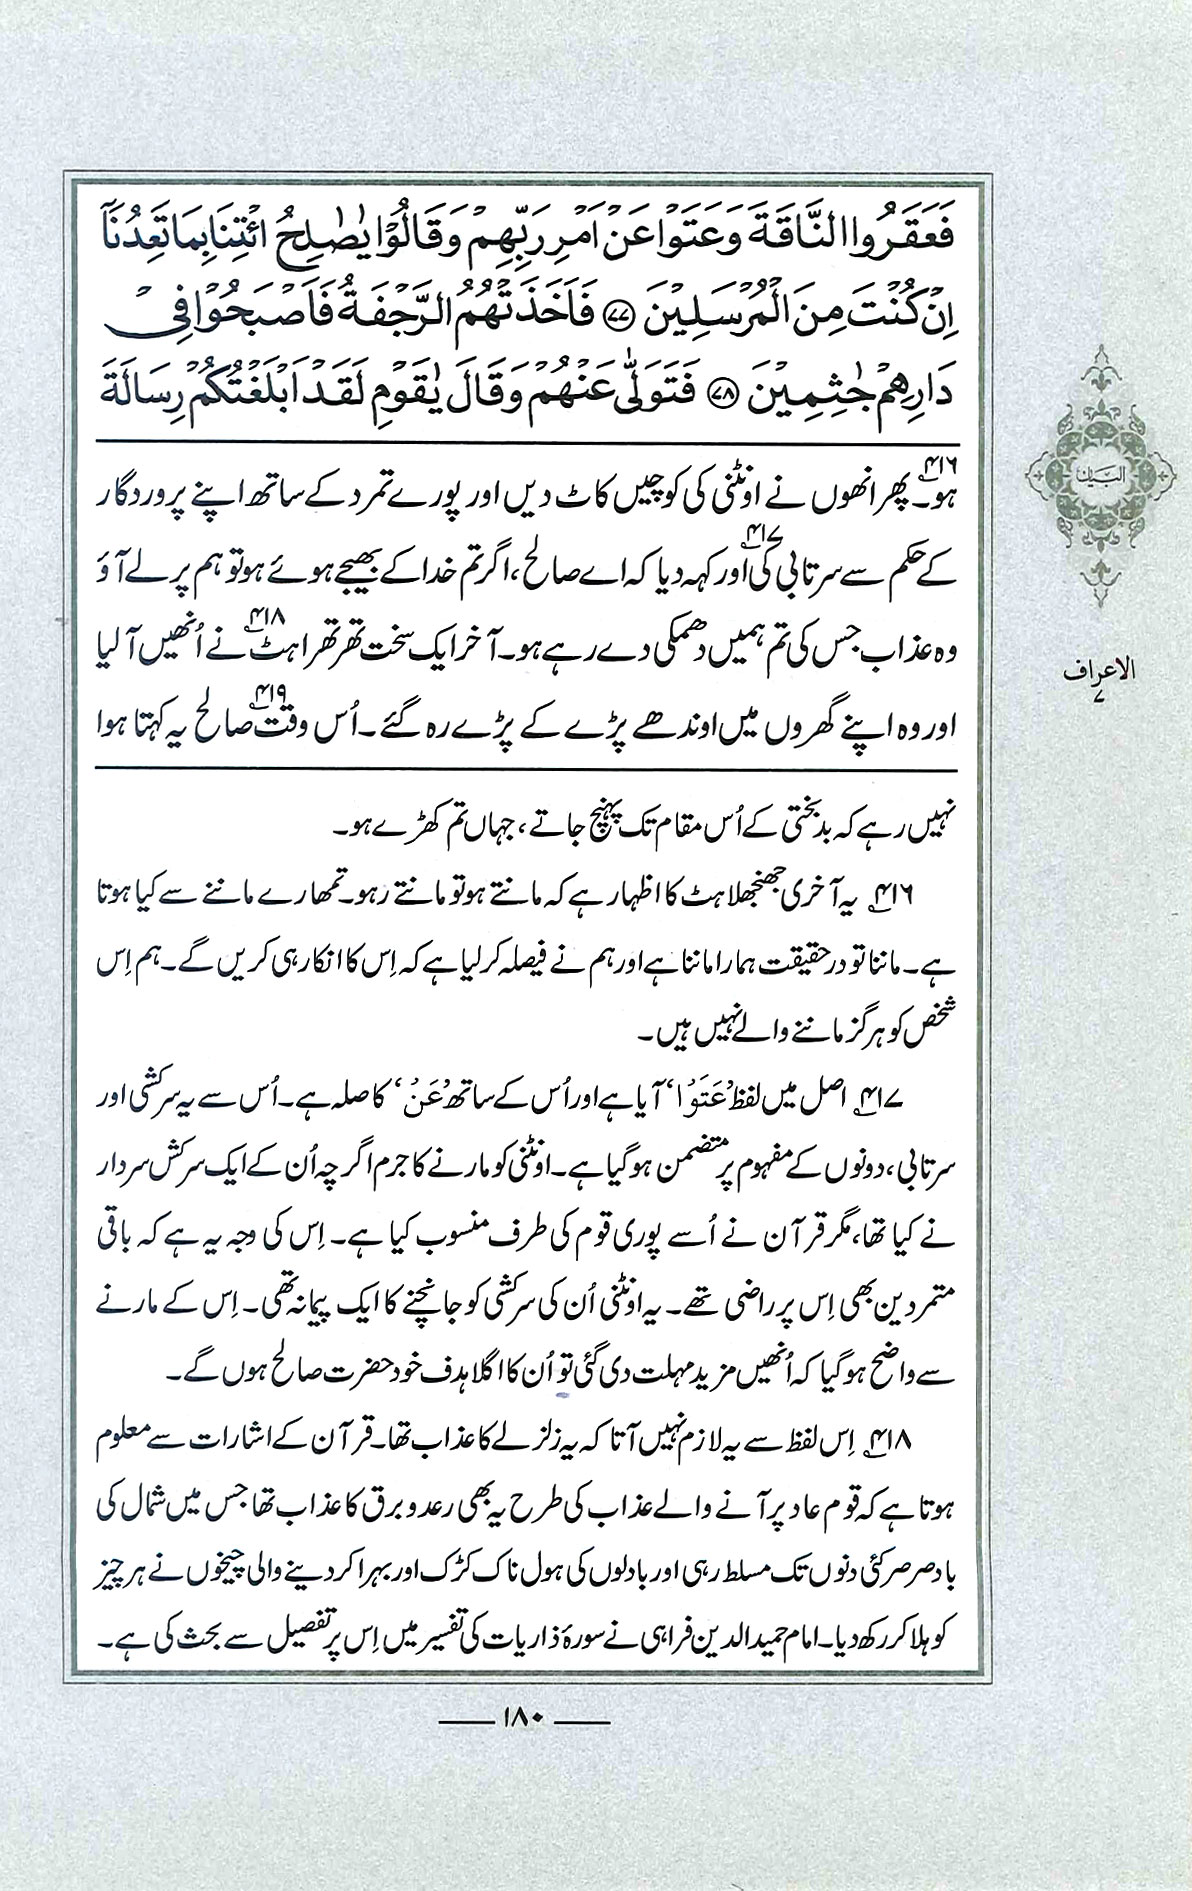 فَعَقَرُوا النَّاقَةَ وَعَتَوْا عَنْ اَمْرِ رَبِّهِمْ وَقَالُوْا یٰصٰلِحُ ائْتِنَا بِمَا تَعِدُنَآ
اِنْ کُنْتَ مِنَ الْمُرْسَلِیْنَ ﴿۷۷﴾ فَاَخَذَتْهُمُ الرَّجْفَةُ فَاَصْبَحُوْا فِیْ
دَارِهِمْ جٰثِمِیْنَ ﴿۷۸﴾ فَتَوَلّٰی عَنْهُمْ وَقَالَ یٰقَوْمِ لَقَدْ اَبْلَغْتُکُمْ رِسَالَةَ
ہو۔۴۱۶ پھر انھوں نے اونٹنی کی کوچیں کاٹ دیں اور پورے تمرد کے ساتھ اپنے پروردگار
کے حکم سے سرتابی کی۴۱۷ اور کہہ دیا کہ اے صالح، اگر تم خدا کے بھیجے ہوئے ہو تو ہم پر لے آؤ
وہ عذاب جس کی تم ہمیں دھمکی دے رہے ہو۔ آخر ایک سخت تھرتھراہٹ۴۱۸ نے اُنھیں آ لیا
اور وہ اپنے گھروں میں اوندھے پڑے کے پڑے رہ گئے۔ اُس وقت۴۱۹ صالح یہ کہتا ہوا
نہیں رہے کہ بدبختی کے اُس مقام تک پہنچ جاتے، جہاں تم کھڑے ہو۔
۴۱۶ یہ آخری جھنجھلاہٹ کا اظہار ہے کہ مانتے ہو تو مانتے رہو۔ تمھارے ماننے سے کیا ہوتا
ہے۔ ماننا تو درحقیقت ہمارا ماننا ہے اور ہم نے فیصلہ کر لیا ہے کہ اِس کا انکار ہی کریں گے۔ ہم اِس
شخص کو ہرگز ماننے والے نہیں ہیں۔
۴۱۷ اصل میں لفظ ’عَتَوْا‘ آیا ہے اور اُس کے ساتھ ’عَنْ‘ کا صلہ ہے۔ اُس سے یہ سرکشی اور
سرتابی، دونوں کے مفہوم پر متضمن ہو گیا ہے۔ اونٹنی کو مارنے کا جرم اگرچہ اُن کے ایک سرکش سردار
نے کیا تھا، مگر قرآن نے اُسے پوری قوم کی طرف منسوب کیا ہے۔ اِس کی وجہ یہ ہے کہ باقی
متمردین بھی اِس پر راضی تھے۔ یہ اونٹنی اُن کی سرکشی کو جانچنے کا ایک پیمانہ تھی۔ اِس کے مارنے
سے واضح ہو گیا کہ اُنھیں مزید مہلت دی گئی تو اُن کا اگلا ہدف خود حضرت صالح ہوں گے۔
۴۱۸ اِس لفظ سے یہ لازم نہیں آتا کہ یہ زلزلے کا عذاب تھا۔ قرآن کے اشارات سے معلوم
ہوتا ہے کہ قوم عاد پر آنے والے عذاب کی طرح یہ بھی رعد و برق کا عذاب تھا جس میں شمال کی
باد صرصر کئی دنوں تک مسلط رہی اور بادلوں کی ہول ناک کڑک اور بہرا کر دینے والی چیخوں نے ہر چیز
کو ہلا کر رکھ دیا۔ امام حمید الدین فراہی نے سورۂ ذاریات کی تفسیر میں اِس پر تفصیل سے بحث کی ہے۔
البیان
الاعراف
۷
۱۸۰